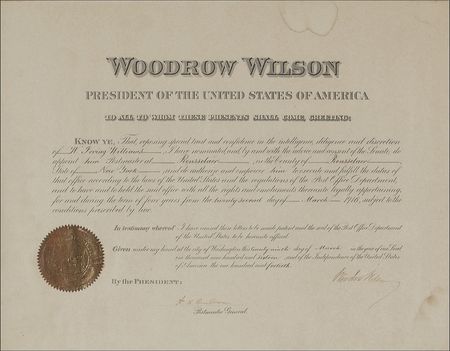 WOODROW WILSON
PRESIDENT OF THE UNITED STATES OF AMERICA
TO ALL TO WHOM THESE PRESENTS SHALL COME, GREETING:
KNOW YE, That, reposing special trust and confidence in the intelligence, diligence and discretion
of W. Irving Williams, I have nominated, and by and with the advice and consent of the Senate, do
appoint him Postmaster at Rensselaer, in the County of Rensselaer,
State of New York and do authorize and empower him to execute and fulfil the duties of
that office according to the laws of the United States and the regulations of the Post Office Department,
and to have and to hold the said office with all the rights and emoluments thereunto legally appertaining,
for and during the term of four years from the twenty second day of March 1916, subject to the
conditions prescribed by law.
In testimony whereof I have caused these letters to be made patent and the seal of the Post Office Department
of the United States to be hereunto affixed.
Given under my hand at the city of Washington this twenty ninth day of March in the year of our Lord
one thousand nine hundred and sixteen and of the Independence of the United States
of America the one hundred and fortieth.
Woodrow Wilson
By the PRESIDENT:
Postmaster General.